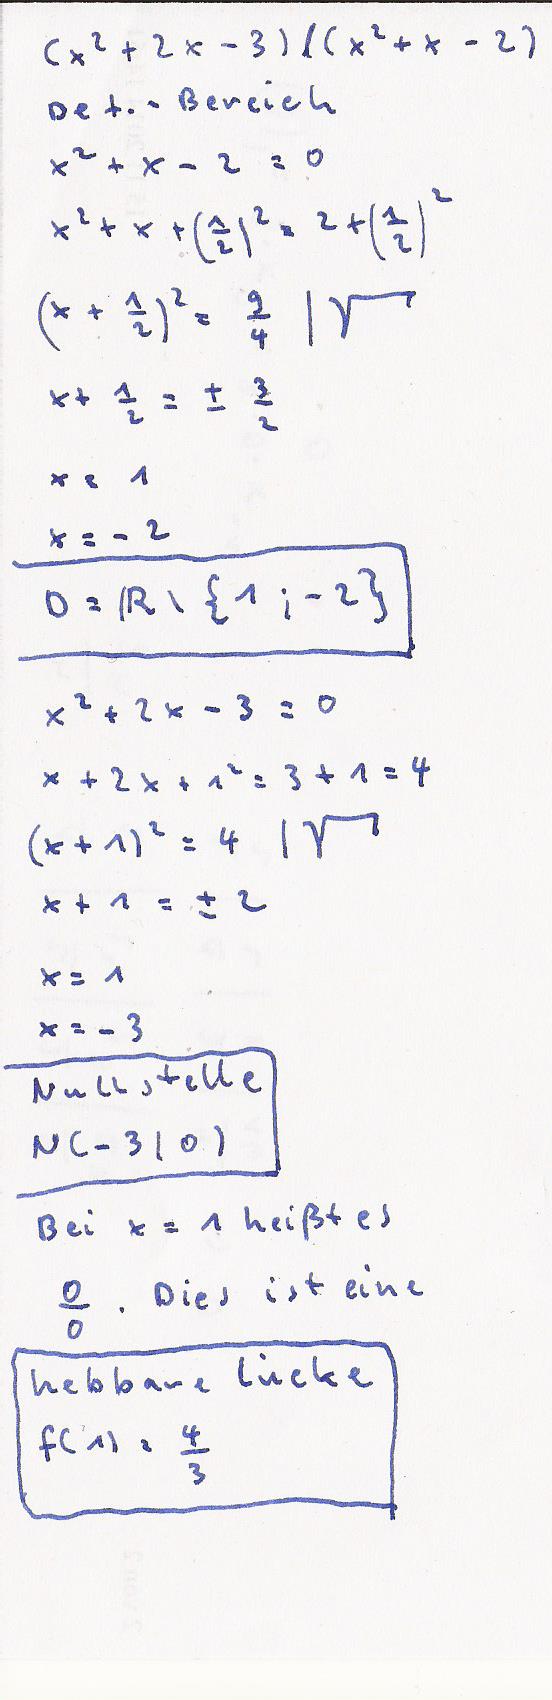 (x² + 2x - 3) / (x² + x - 2)
Def.-Bereich
x² + x - 2 = 0
x² + x + (1/2)² = 2 + (1/2)²
(x + 1/2)² = 9/4 | √
x + 1/2 = ± 3/2
x = 1
x = - 2
D = ℝ \ {1 ; -2}
x² + 2x - 3 = 0
x + 2x + 1² = 3 + 1 = 4
(x + 1)² = 4 | √
x + 1 = ± 2
x = 1
x = - 3
Nullstelle
N(-3|0)
Bei x = 1 heißt es
0/0. Dies ist eine
hebbare Lücke
f(1) = 4/3